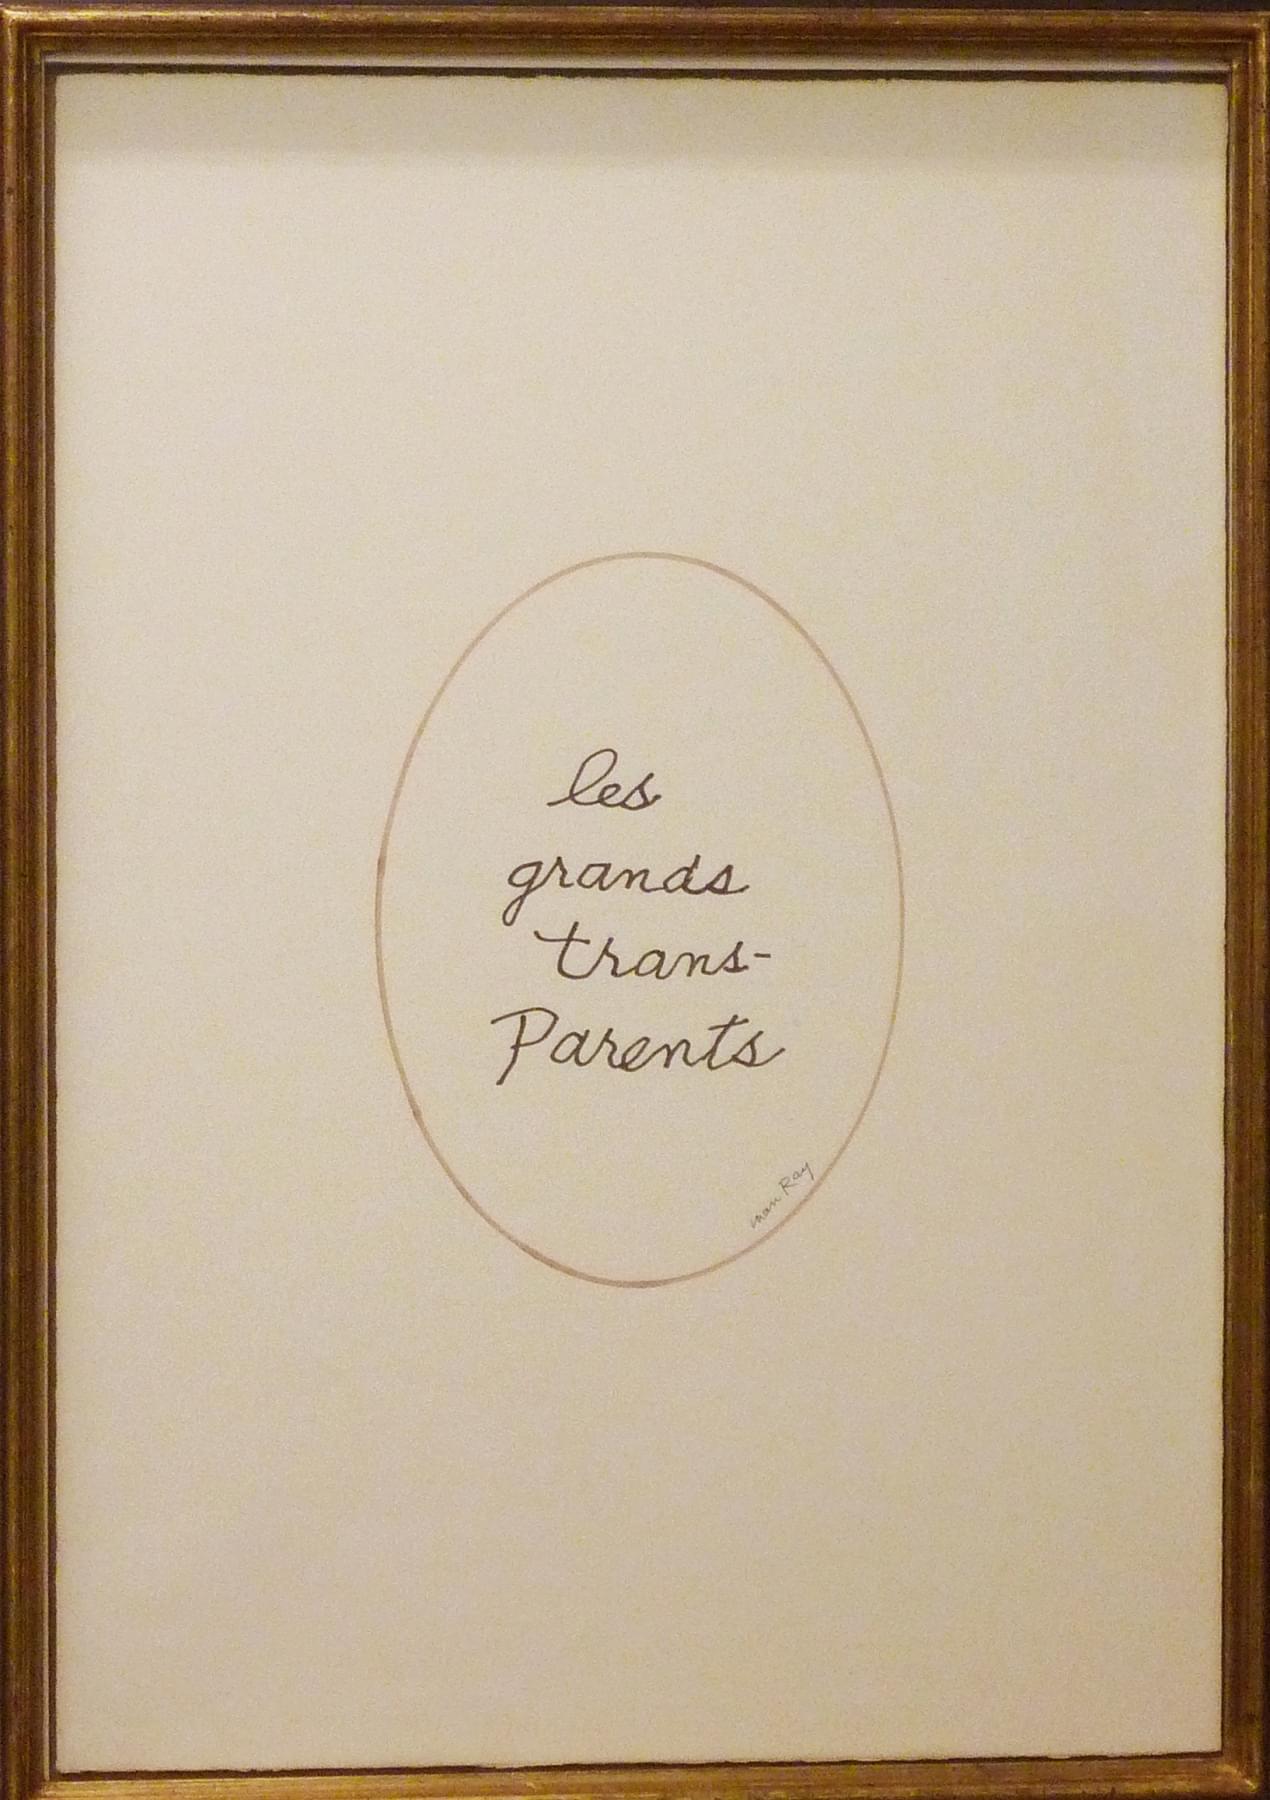 les
grands
trans-
Parents
man Ray